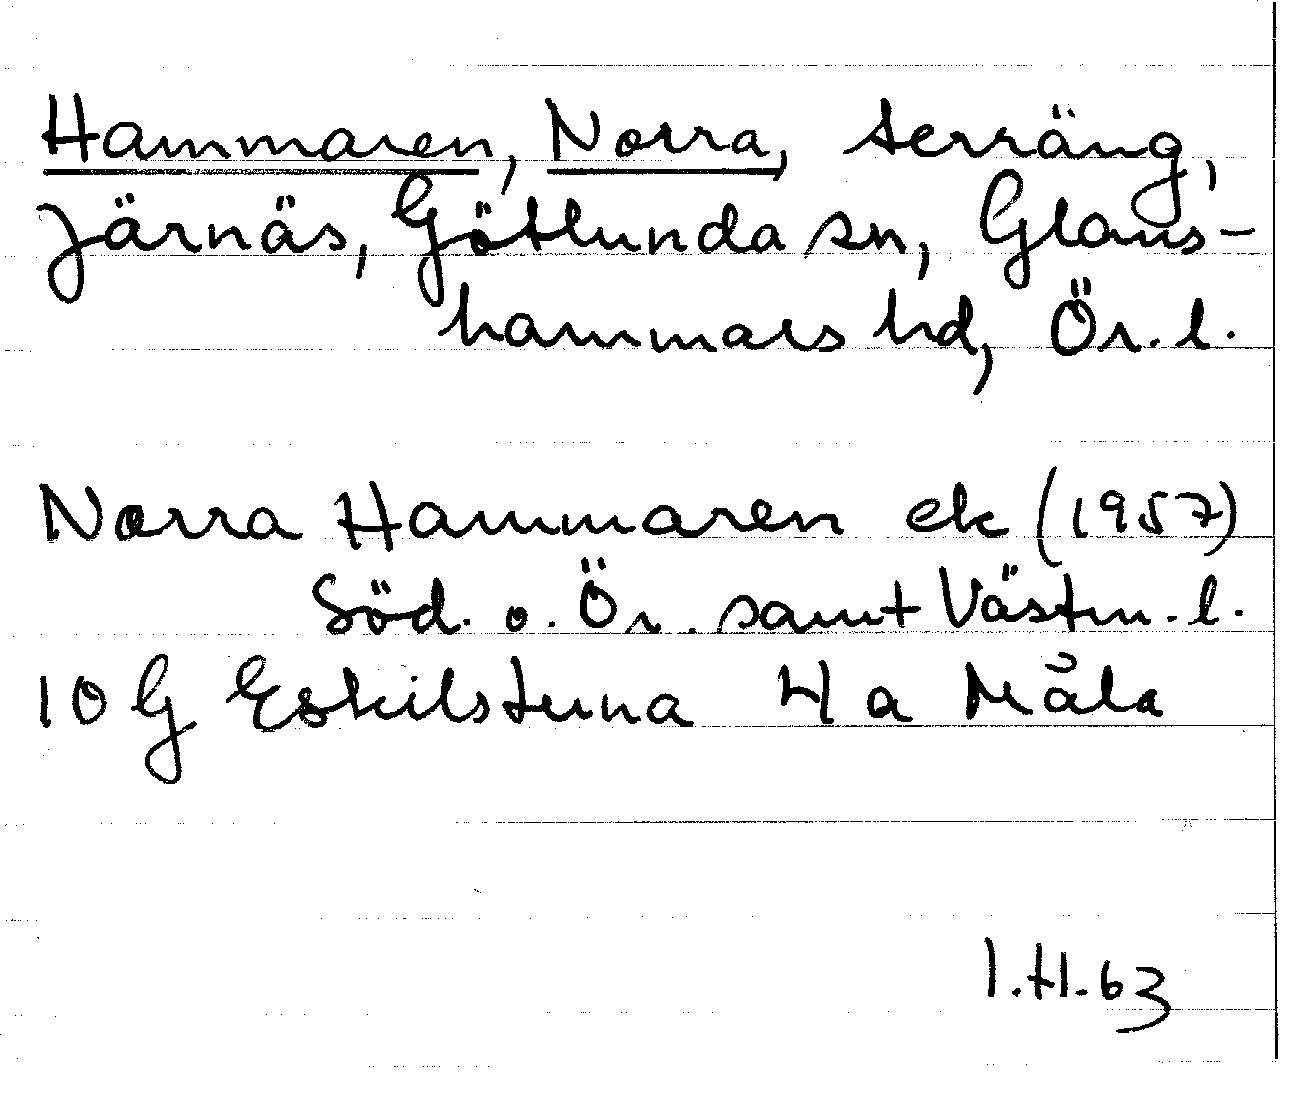 Hammaren, Norra, terräng,
Järnäs, Götlunda sn, Glans-
hammars hd, Ör. l.
Norra Hammaren ek (1957)
Söd. o. Ör. samt Västm. l.
10 G Eskilstuna 4 a Måla
I.H.63